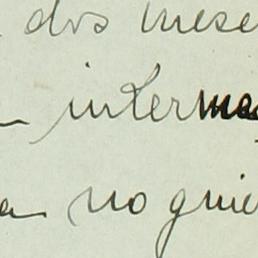 dos mese
interme
no quie